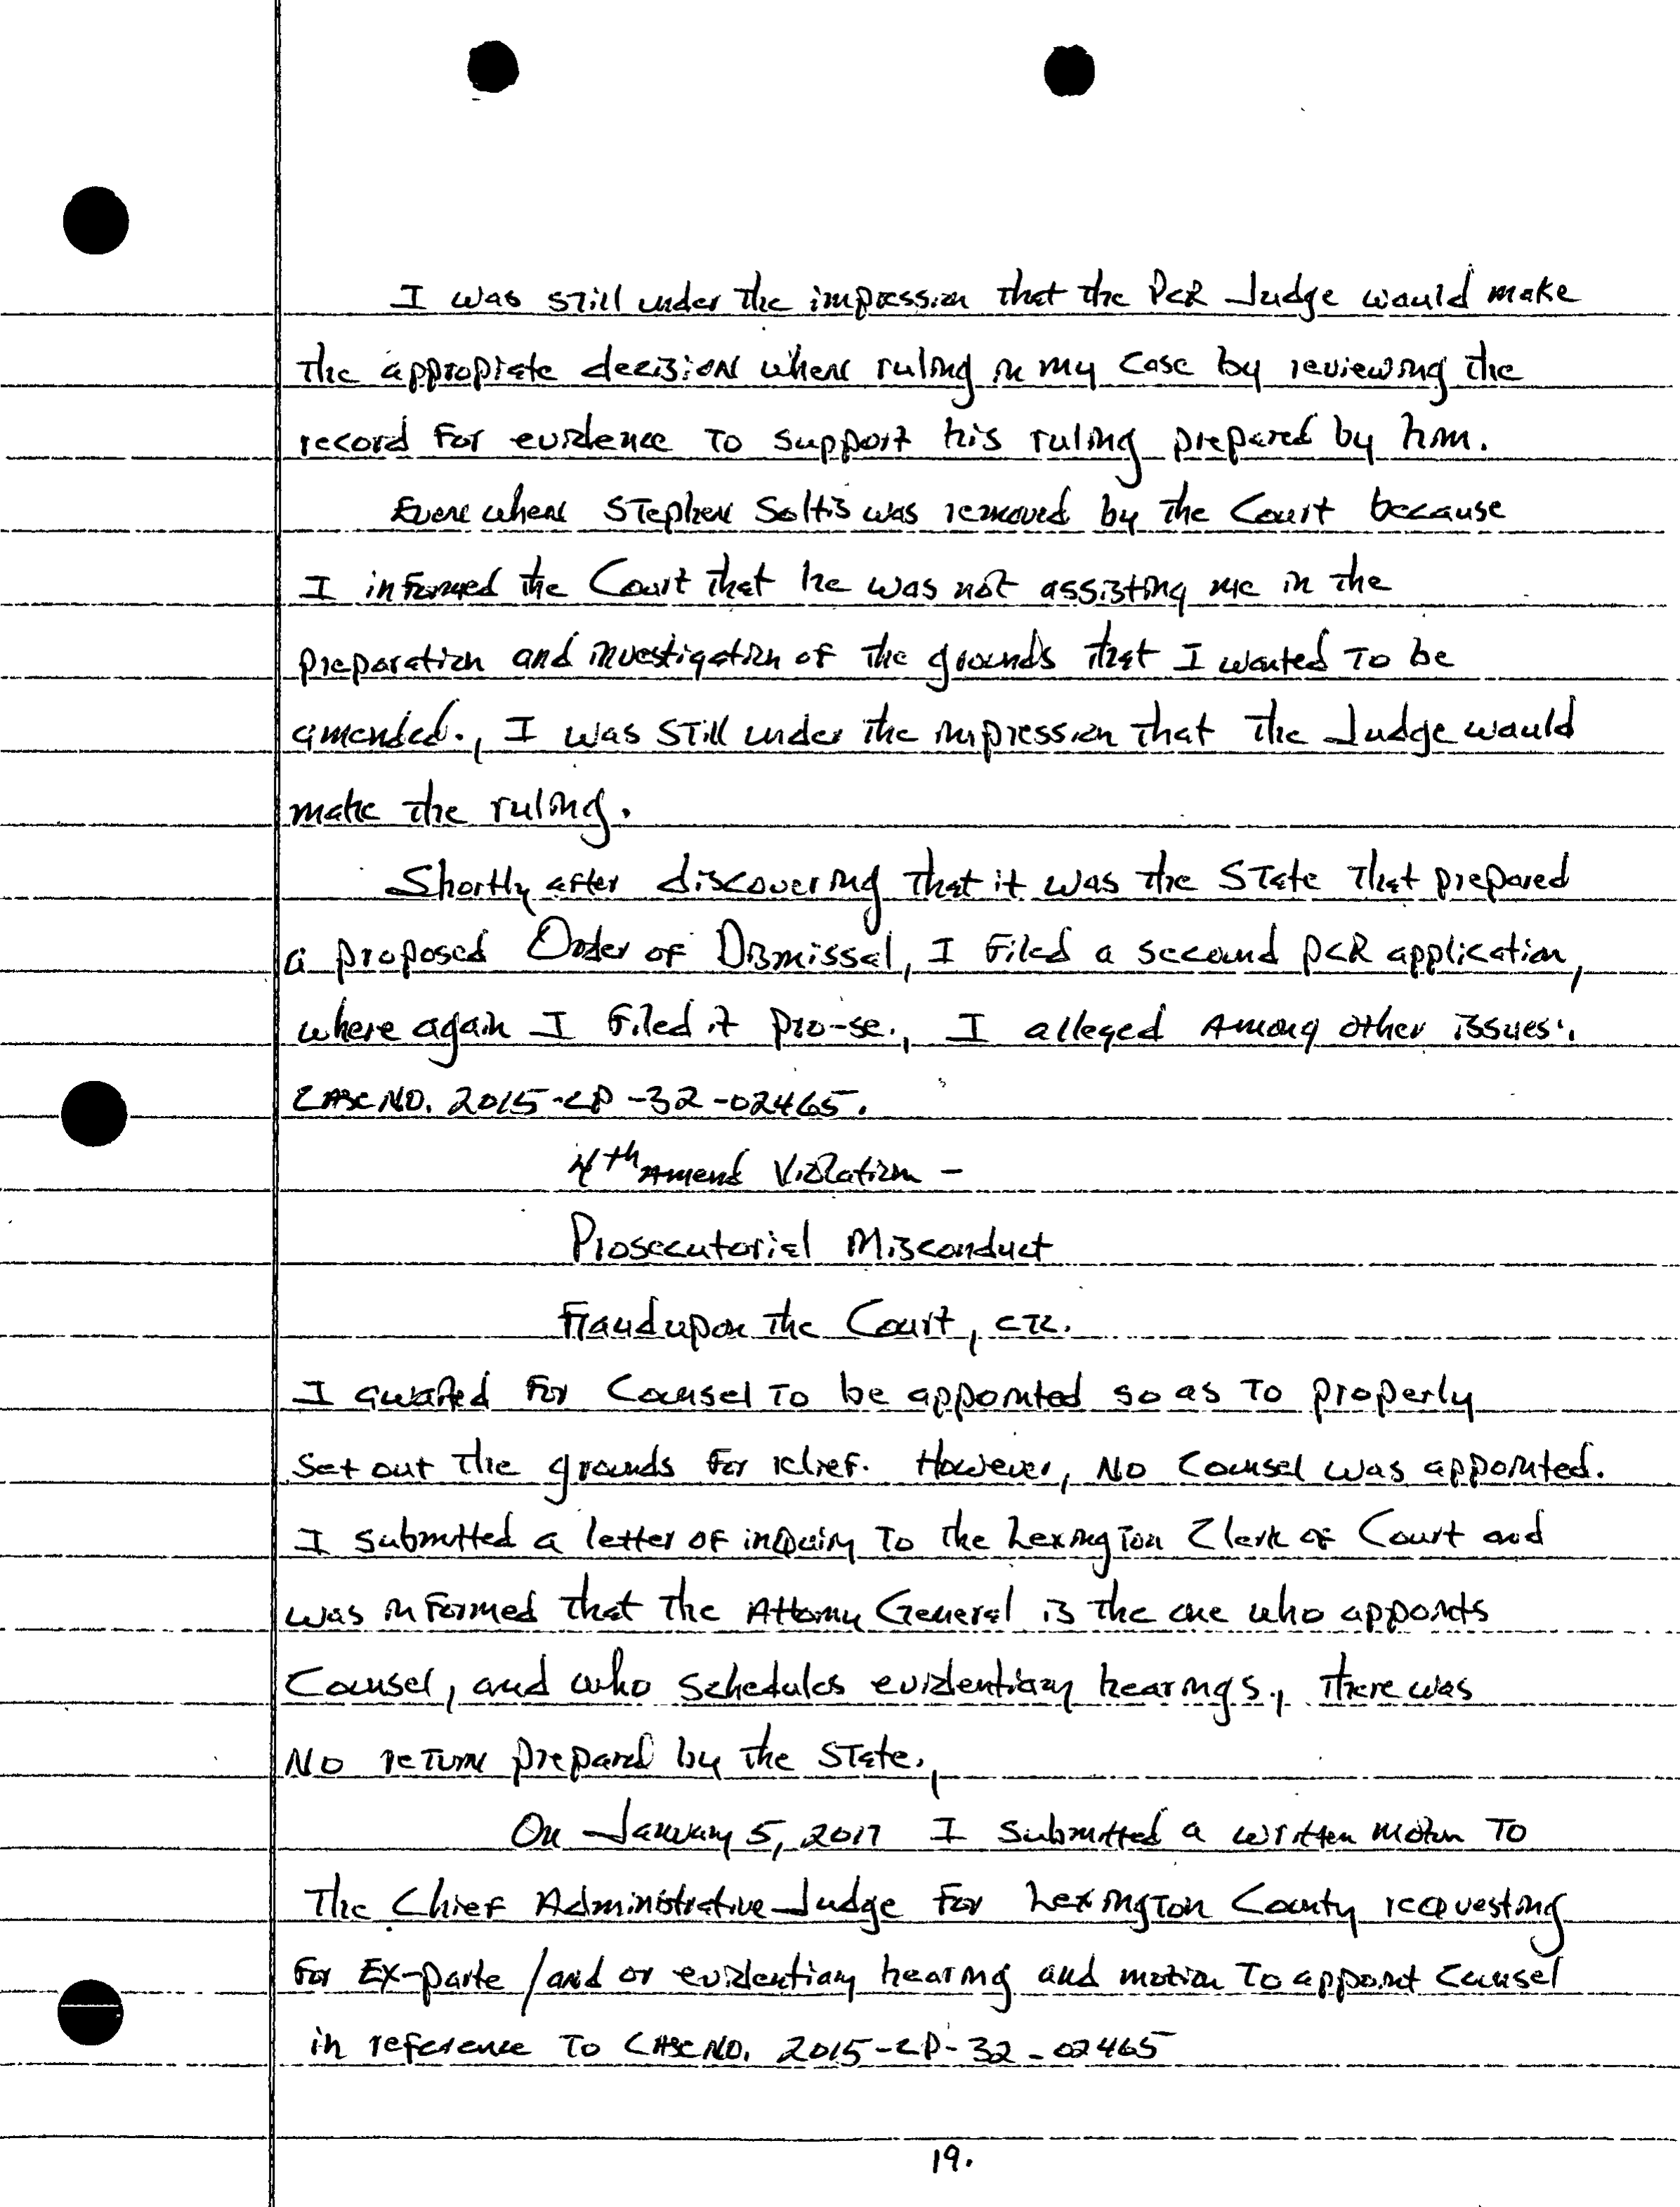 I was still under the impression that the PCR Judge would make
the appropiate decision when ruling in my case by reviewing the
record for evidence to support his ruling prepared by him.
Even when Stephen Soltis was removed by the Court because
I informed the Court that he was not assisting me in the
preparation and investigation of the grounds that I wanted to be
amended., I was still under the impression that the Judge would
make the ruling.
Shortly after discovering that it was the State that prepared
a proposed Order of Dismissal, I filed a second PCR application,
where again I filed it pro-se., I alleged among other issues:
CASE NO. 2015-CP-32-02465.
4th Amend Violation -
Prosecutorial Misconduct
Fraud upon the Court, etc.
I awaited for Counsel to be appointed so as to properly
set out the grounds for relief. However, no Counsel was appointed.
I submitted a letter of inquiry to the Lexington Clerk of Court and
was informed that the Attorny General is the one who appoints
Counsel, and who schedules evidentiary hearings., there was
no return prepared by the State.,
On January 5, 2017 I submitted a written motion to
The Chief Administrative Judge for Lexington County requesting
for Ex-parte /and or evidentiary hearing and motion to appoint Counsel
in reference to CASE NO. 2015-CP-32-02465
19.